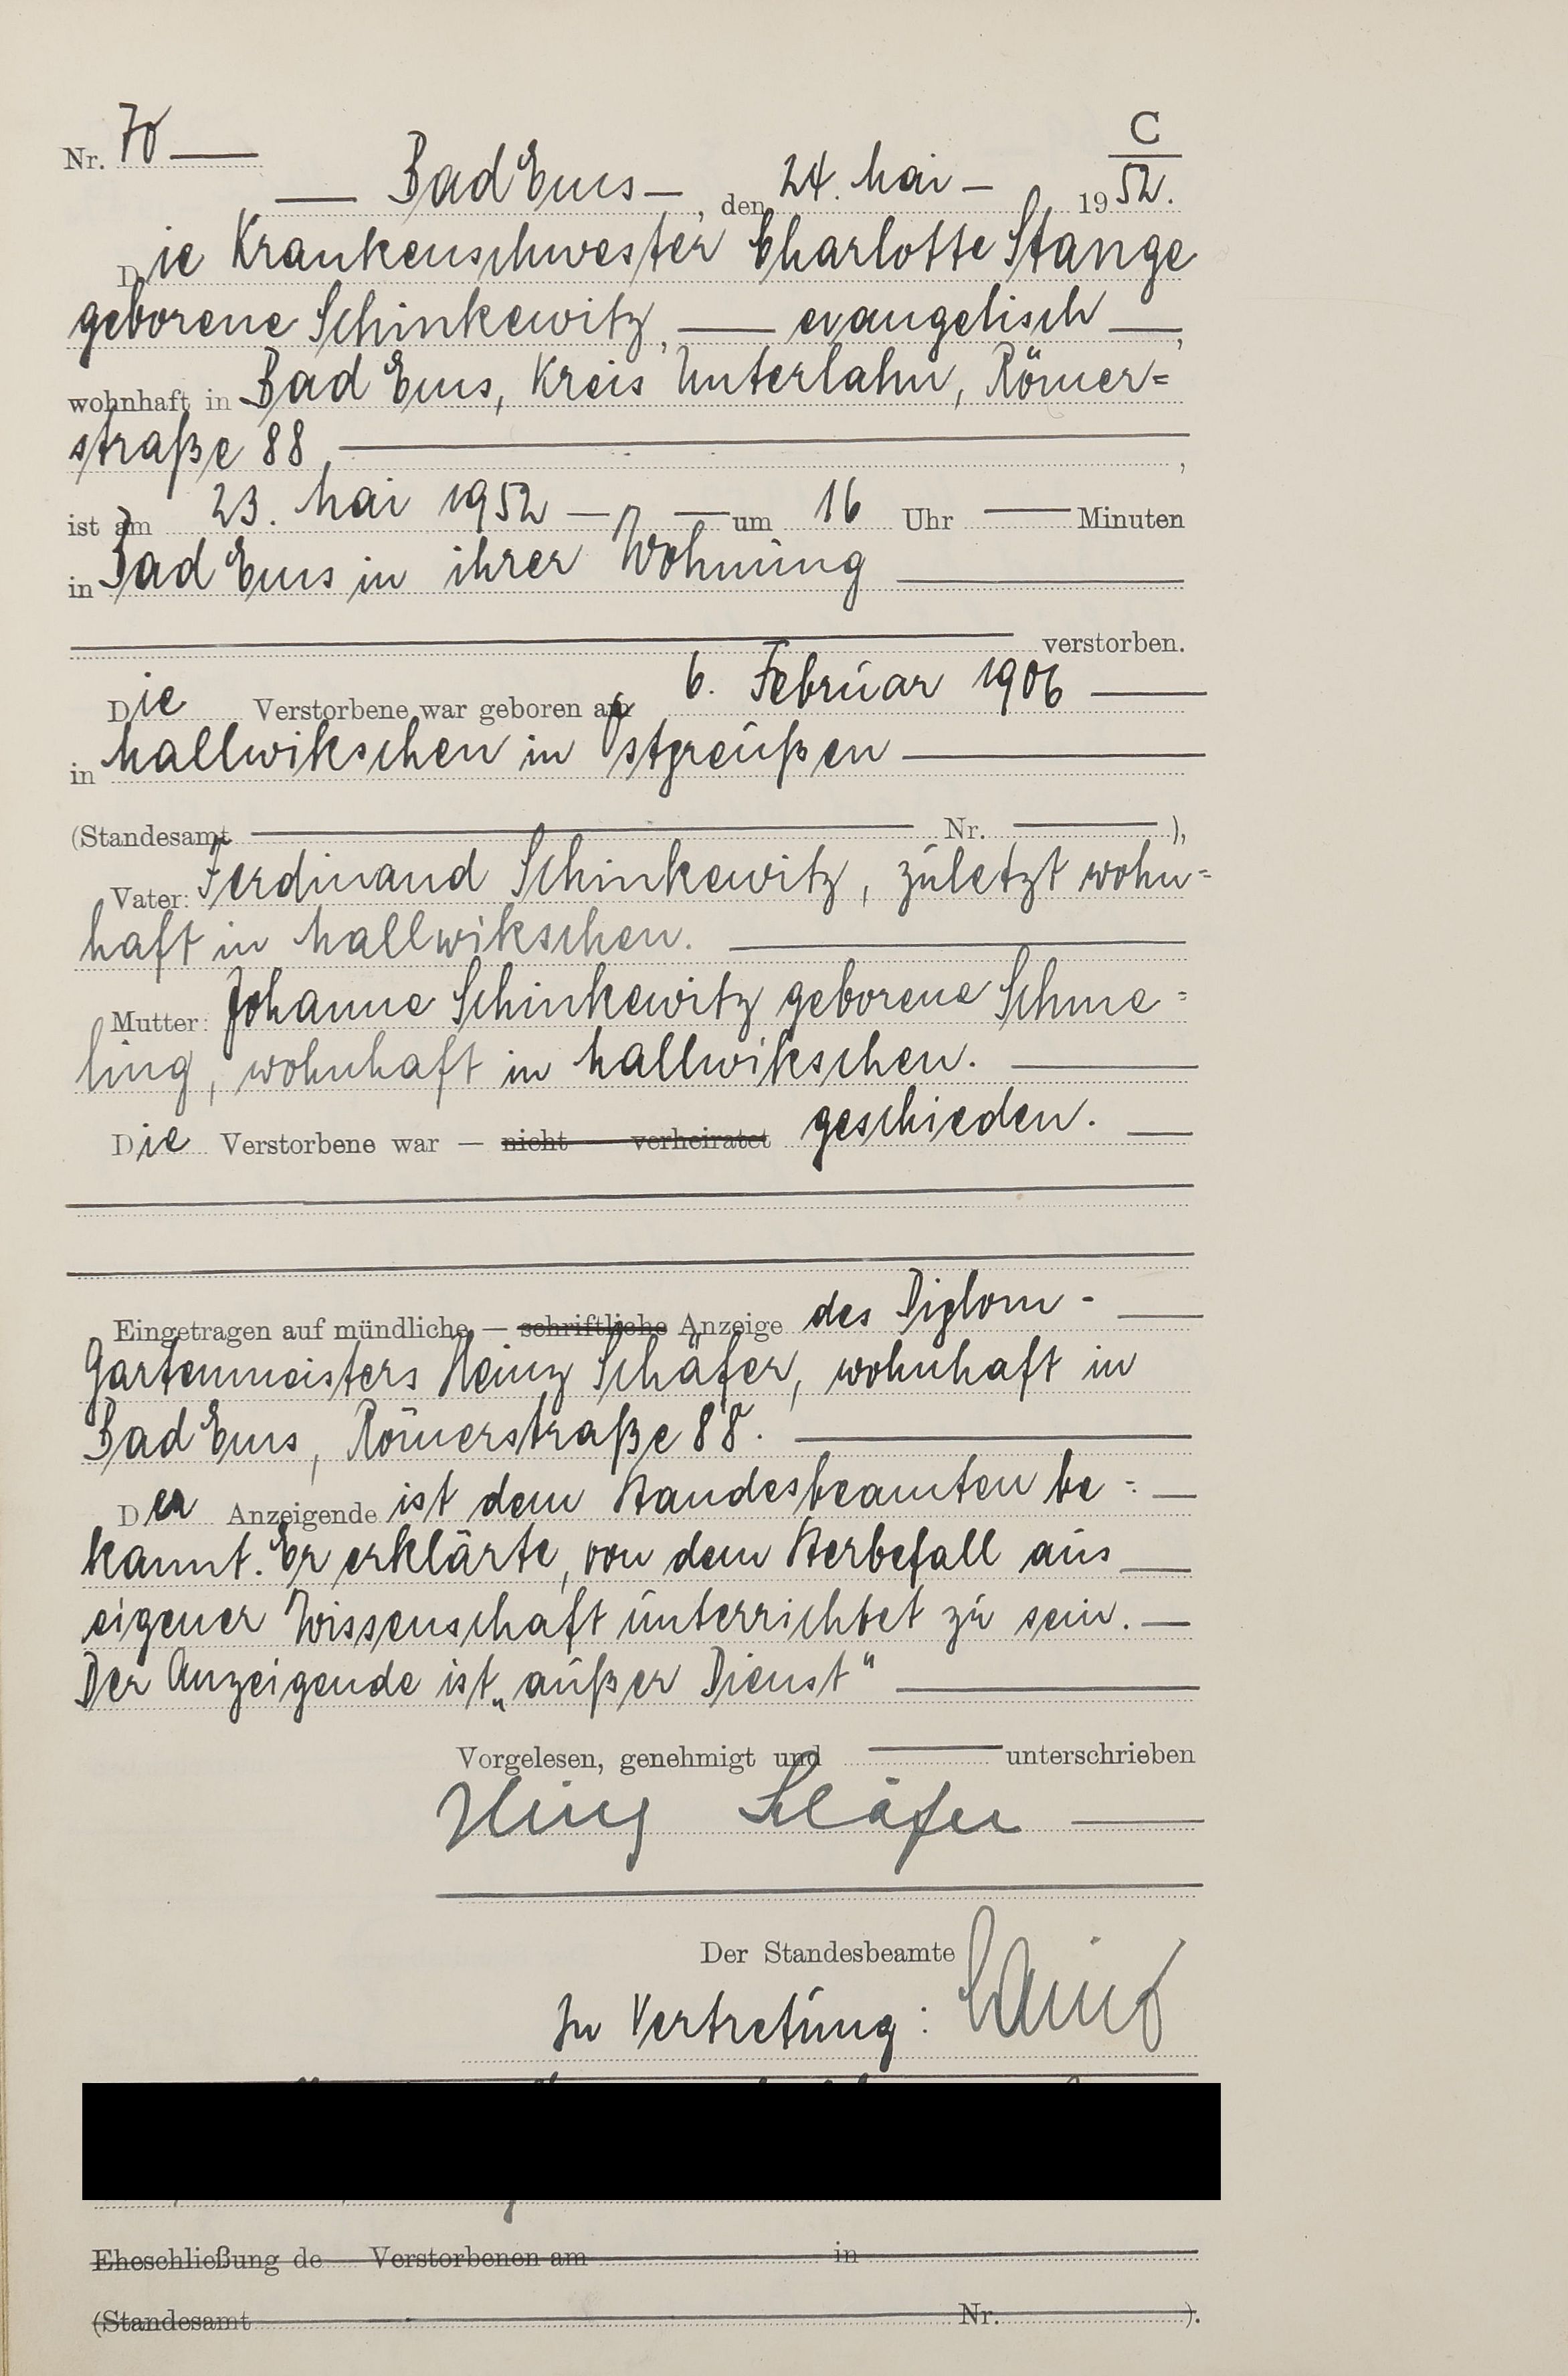 C
Nr. 70
Bad Ems, den 24. Mai 1952.
Die Krankenschwester Charlotte Stange
geborene Schinkewitz, evangelisch,
wohnhaft in Bad Ems, Kreis Unterlahn, Römer=
straße 88,
ist am 23. Mai 1952 um 16 Uhr Minuten
in Bad Ems in ihrer Wohnung
verstorben.
Die Verstorbene war geboren am 6. Februar 1906
in Mallwikschen in Ostpreußen
(Standesamt Nr. ),
Vater: Ferdinand Schinkewitz, zuletzt wohn=
haft in Mallwikschen.
Mutter: Johanne Schinkewitz geborene Schme=
ling, wohnhaft in Mallwikschen.
Die Verstorbene war — nicht — verheiratet geschieden.
Eingetragen auf mündliche — schriftliche Anzeige des Diplom-
Gartenmeisters Heinz Schäfer, wohnhaft in
Bad Ems, Römerstraße 88.
Der Anzeigende ist dem Standesbeamten be=
kannt. Er erklärte, von dem Sterbefall aus
eigener Wissenschaft unterrichtet zu sein.
Der Anzeigende ist „außer Dienst“
Vorgelesen, genehmigt und unterschrieben
Heinz Schäfer
Der Standesbeamte
In Vertretung:
Eheschließung de Verstorbenen am in
(Standesamt Nr. ).